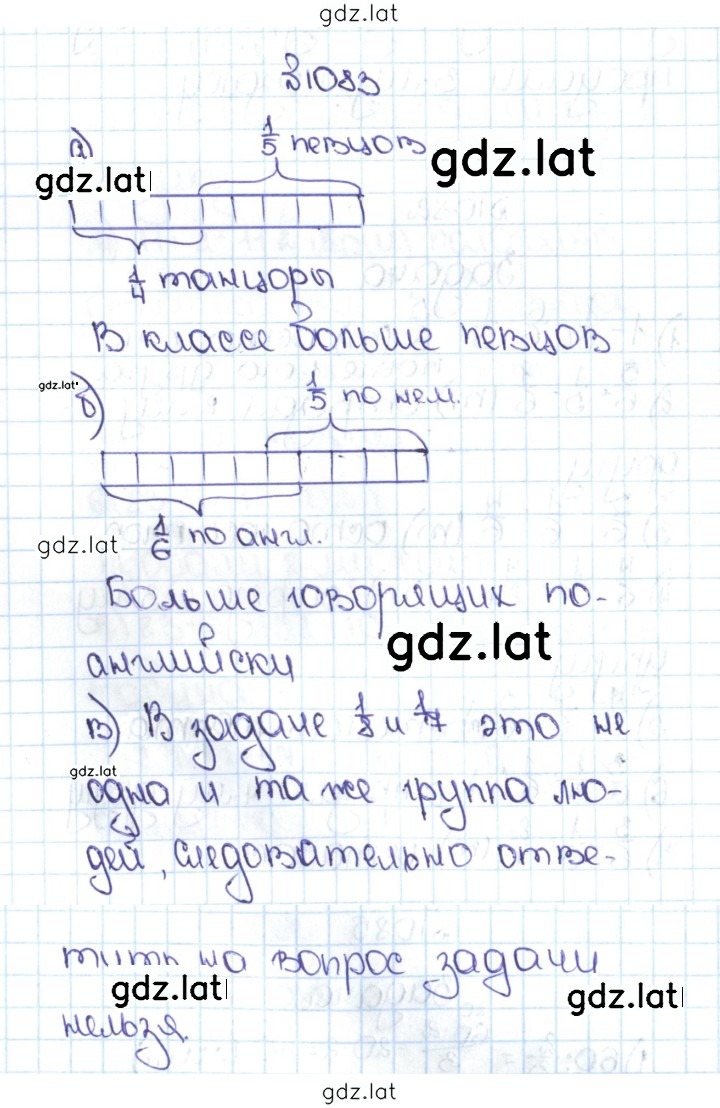 gdz.lat
№1083
а) 1/5 певцов gdz.lat
gdz.lat
1/4 танцоры
В классе больше певцов
gdz.lat
б) 1/5 по нем.
gdz.lat 1/6 по англ.
Больше говорящих по-
gdz.lat
английски
в) В задаче 1/8 и 1/7 это не
gdz.lat
одна и та же группа лю-
дей, следовательно отве-
тить на вопрос задачи
gdz.lat gdz.lat
нельзя.
gdz.lat